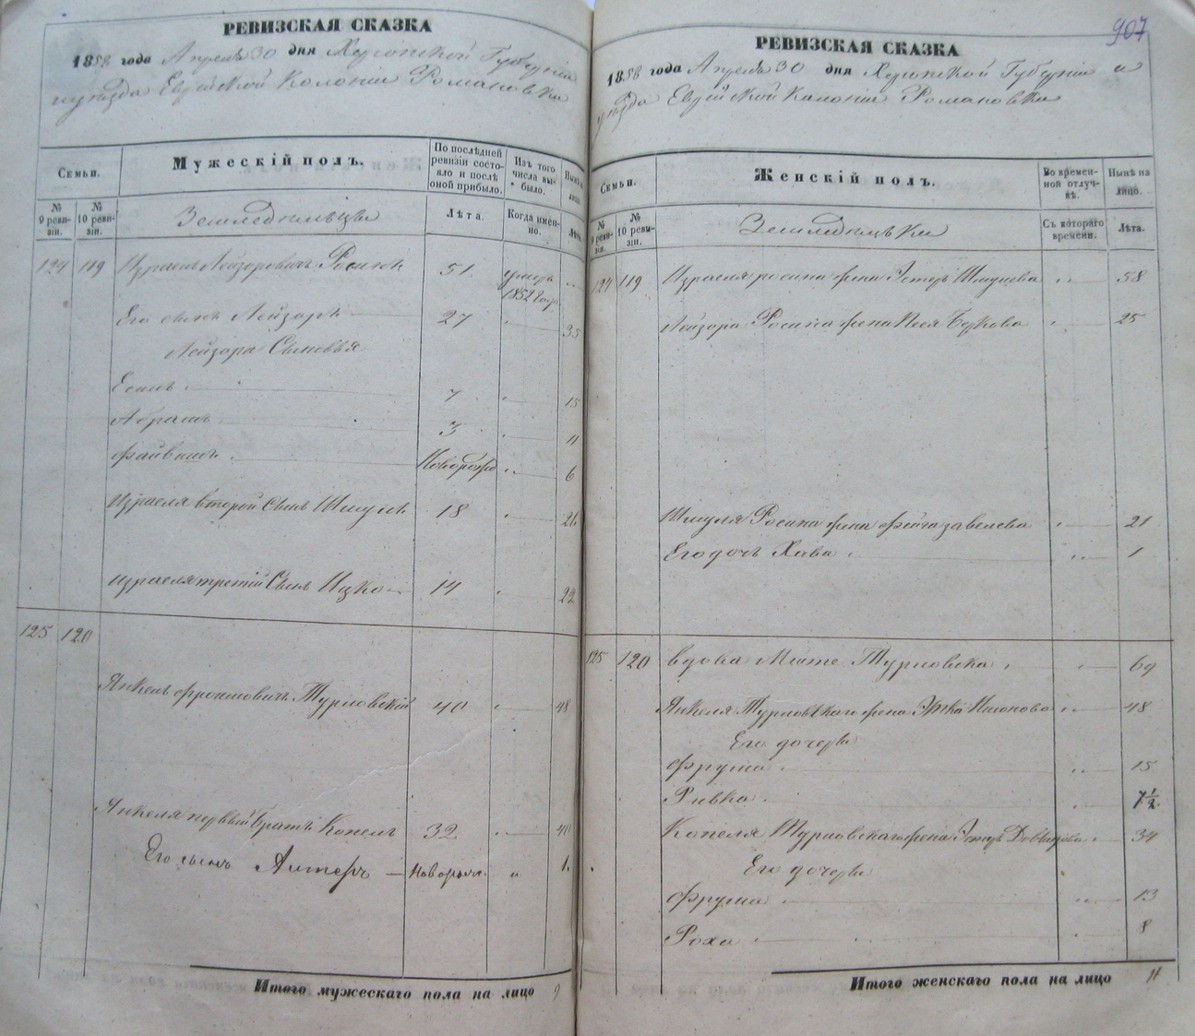 РЕВИЗСКАЯ СКАЗКА
1858 года Апреля 30 дня Херсонской Губерніи
и уѣзда Еврейской Колоніи Романовки
Семьи.
Мужескій полъ.
По послѣдней ревизіи состояло и послѣ оной прибыло.
Изъ того числа выбыло.
Нынѣ на лицо.
№ 9 ревизіи.
№ 10 ревизіи.
Земледѣльцы
Лѣта.
Когда именно.
Лѣта.
124 119 Израель Лейзоровичъ Росинъ 51 умеръ 1852 году "
Его сынъ Лейзоръ 27 " 35
Лейзора Сыновья
Есин 7 " 15
Абрамъ 3 " 11
Файвишъ Новорожд " 6
Израеля второй Сынъ Шмуль 18 " 26
Израеля третій Сынъ Ицко 14 " 22
125 120
Янкель Фроимовичъ Турповскій 40 " 48
Янкеля первый братъ Копель 32 " 40
Его сынъ Алтеръ — Новорож. " 1.
Итого мужескаго пола на лицо 9
907
РЕВИЗСКАЯ СКАЗКА
1858 года Апреля 30 дня Херсонской Губерніи и
уѣзда Еврейской Колоніи Романовки
Семьи.
Женскій полъ.
Во временной отлучкѣ.
Нынѣ на лицо.
№ 9 ревизіи.
№ 10 ревизіи.
Земледѣльцы
Съ котораго времени.
Лѣта.
124 119 Израеля Росина жена Эстеръ Шмулева " 58
Лейзора Росина жена Песя Беркова " 25
Шмуля Росина жена Фейга Завелева " 21
Его дочь Хава " 1
125 120 вдова Мате Турповска " 69
Янкеля Турповскаго жена " 48
Его дочери
Фрума " 15
Ривка " 7½
Копеля Турповскаго жена Эстеръ Довыдова " 34
Его дочери
Фрума " 13
Роха " 8
Итого женскаго пола на лицо 11